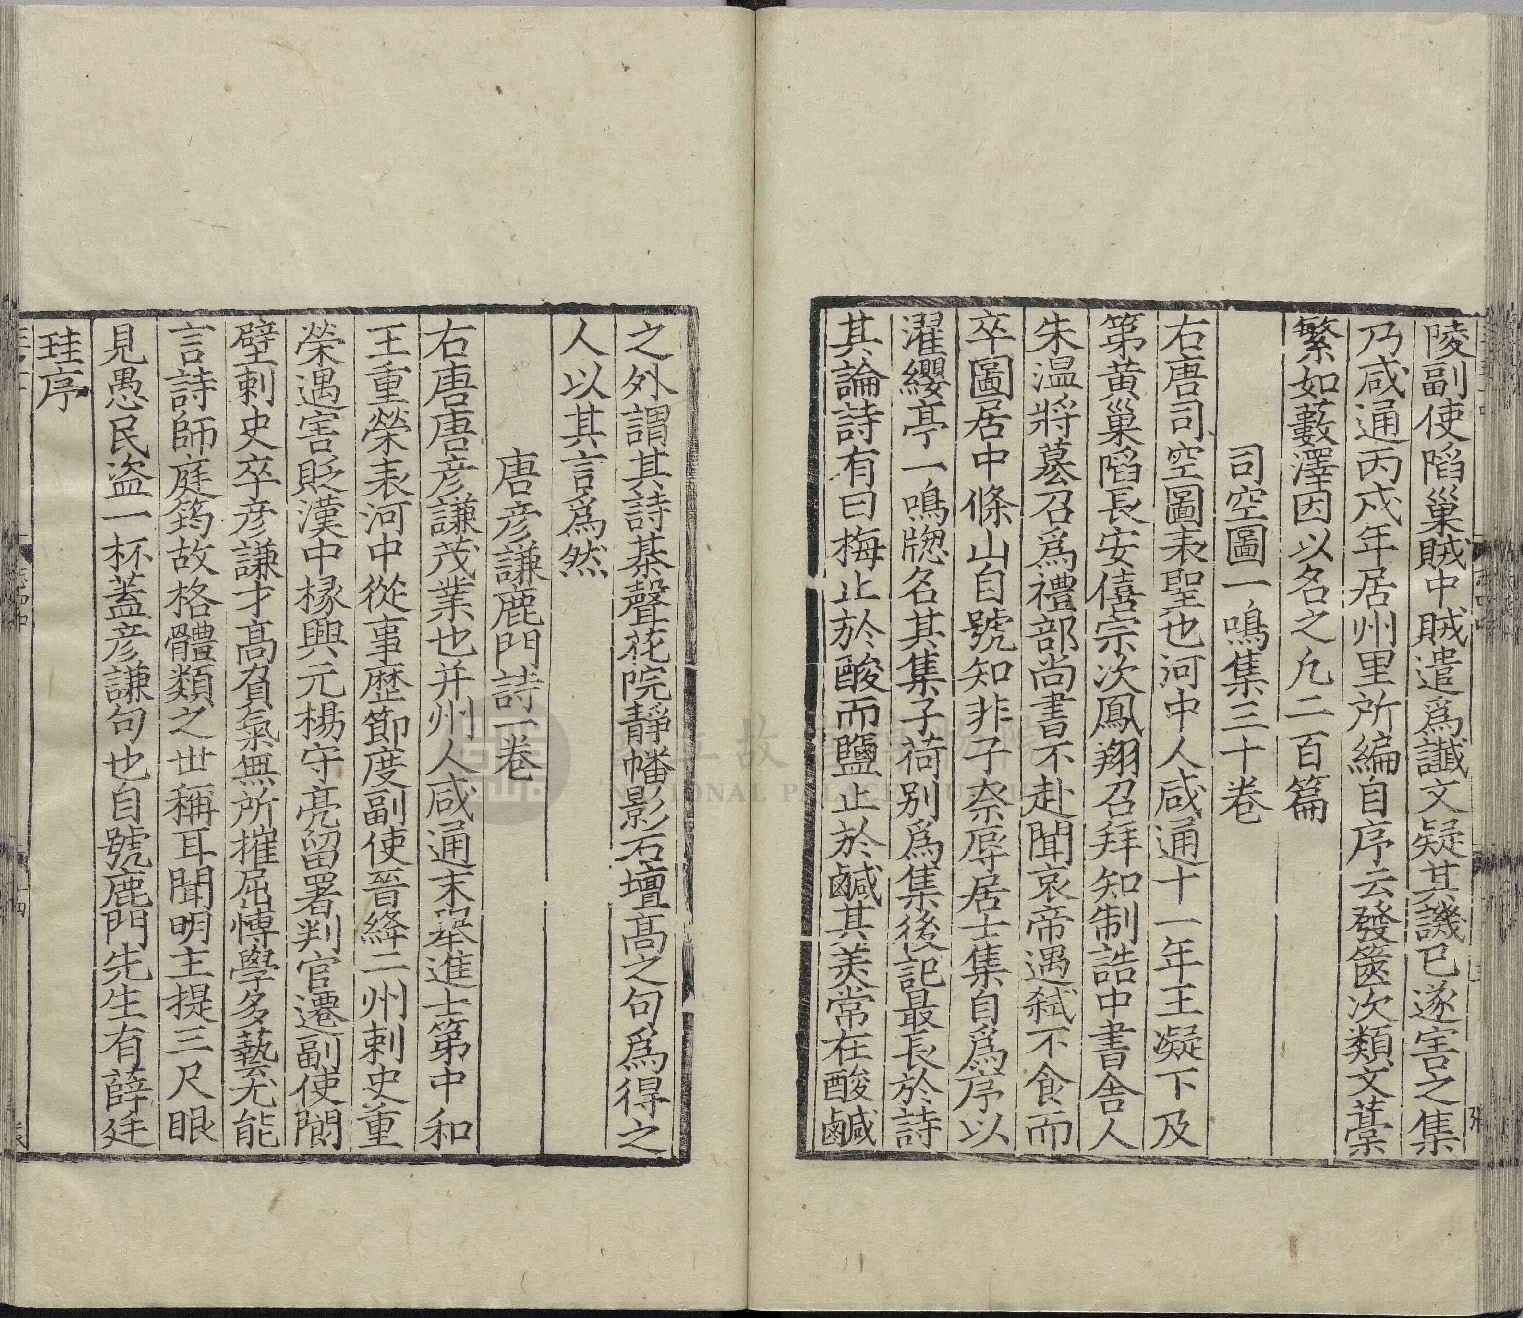 陵副使陷巢賊中賊遣爲讖文疑其譏已遂害之集
乃咸通丙戍年居州里所編自序云發篋次類文藁
繁如藪澤因以名之凡二百篇
司空圖一鳴集三十卷
右唐司空圖表聖也河中人咸通十一年王凝下及
第黃巢陷長安僖宗次鳳翔召拜知制誥中書舍人
朱温將簒召爲禮部尚書不赴聞哀帝遇弑不食而
卒圖居中條山自號知非子奈辱居士集自爲序以
濯纓亭一鳴牎名其集子荷别爲集後記最長於詩
其論詩有曰梅止於酸而鹽止於鹹其美常在酸鹹
之外謂其詩棊聲花院靜幡影石壇髙之句爲得之
人以其言爲然
唐彦謙鹿門詩一卷
右唐唐彦謙茂業也并州人咸通末舉進士第中和
王重榮表河中從事歷節度副使晉絳二州刺史重
榮遇害貶漢中掾興元楊守亮留署判官遷副使閬
壁刺史卒彦謙才髙負氣無所摧屈愽學多藝尤能
言詩師庭筠故格體類之世稱耳聞明主提三尺眼
見愚民盗一杯蓋彦謙句也自號鹿門先生有薛廷
珪序
國立故宮博物院
NATIONAL PALACE MUSEUM